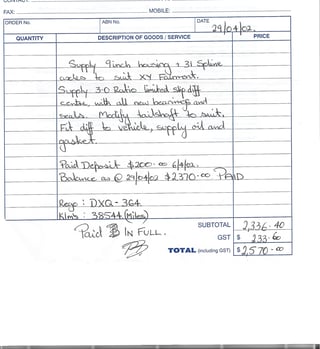 FAX:
MOBILE:
ORDER No.
ABN No.
DATE
29/04/02.
QUANTITY
DESCRIPTION OF GOODS / SERVICE
PRICE
Supply 9inch housing + 31 Spline
axles to suit XY Fairmont.
Supply 3.0 Ratio limited slip diff
centre with all new bearings and
seals. Modify tailshaft to suit.
Fit diff to vehicle, supply oil and
gasket.
Paid Deposit $200.00 6/4/02.
Balance as @ 29/04/02 $2370.00 PAID
Rego: DXQ-364.
Klms: 38544 (Miles)
Paid IN FULL.
SUBTOTAL 2,336.40
GST $ 233.60
TOTAL (including GST) $2,570.00